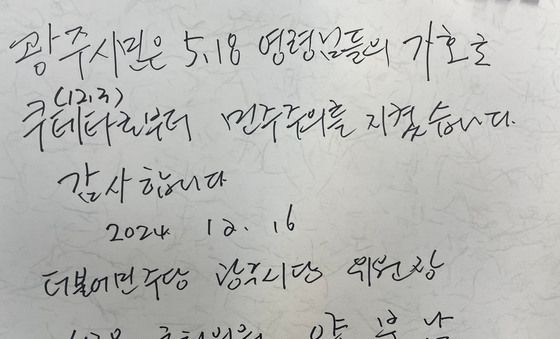 광주시민은 5.18 영령님들의 가호로
(12.3)
쿠테타로부터 민주주의를 지켰습니다.
감사합니다
2024 12. 16
더불어민주당 광주시당 위원장
양부남